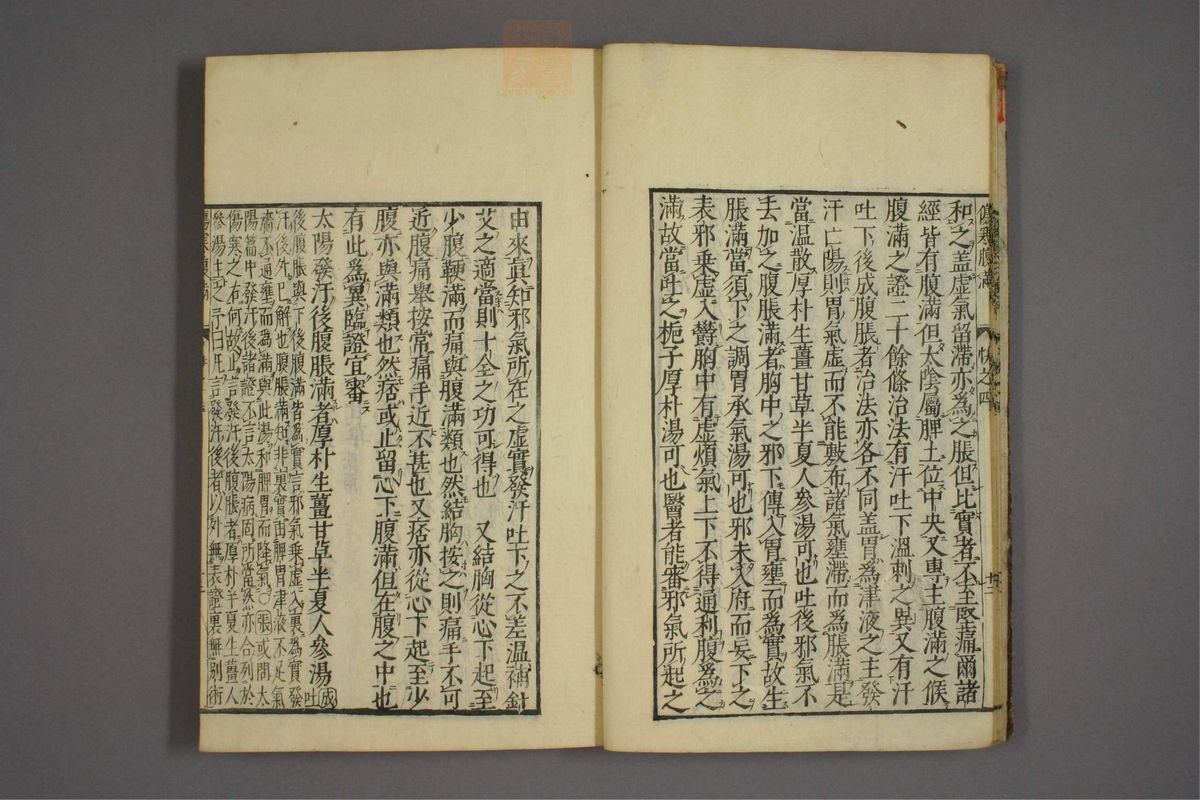 傷寒腹滿 卷之四
和之蓋虛氣留滯亦爲之脹但比實者不至堅痛爾諸
經皆有腹滿但太陰屬脾土位中央又專主腹滿之候
腹滿之證二十餘條治法有汗吐下溫刺之異又有汗
吐下後成腹脹者治法亦各不同蓋胃爲津液之主發
汗亡陽則胃氣虛而不能敷布諸氣壅滯而爲脹滿是
當温散厚朴生薑甘草半夏人參湯可也吐後邪氣不
去加之腹脹滿者胸中之邪下傳入胃壅而爲實故生
脹滿當須下之調胃承氣湯可也邪未入府而妄下之
表邪乘虛入欝胸中有虛煩氣上下不得通利腹爲之
滿故當吐之梔子厚朴湯可也醫者能審邪氣所起之
由來眞知邪氣所在之虛實發汗吐下之不差溫補針
艾之適當則十全之功可得也 又結胸從心下起至
少腹鞕滿而痛與腹滿類也然結胸按之則痛手不可
近腹痛舉按常痛手近不甚也又痞亦從心下起至少
腹亦與滿類也然痞或止留心下腹滿但在腹之中也
有此爲異臨證宜審
太陽發汗後腹脹滿者厚朴生薑甘草半夏人參湯 成 吐
後腹脹與下後腹滿皆爲實言邪氣乘虛入裏爲實發
汗後外已解也腹脹滿知非裏實由脾胃津液不足氣
濇不通壅而爲滿與此湯和脾胃而降氣○張或問太
陽篇中發汗後諸證不言太陽病固所當然亦合列於
傷寒之右何故止言發汗後腹脹者厚朴半夏生薑人
參湯主之予曰凡言發汗後者以外無表證裏無別術
傷寒腹滿